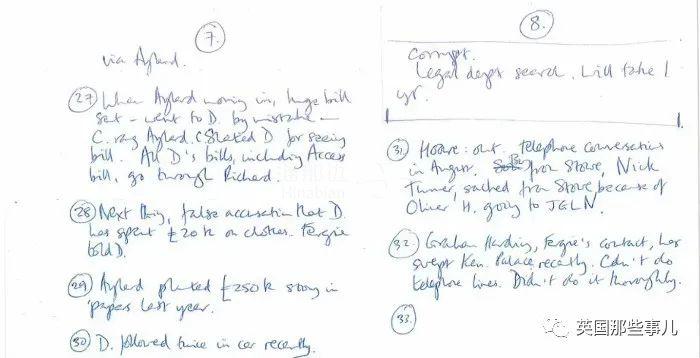 7.
via Aylard.
27) When Aylard moving in, huge bill
sent - went to D. by mistake -
C. rang Aylard. C slated D for seeing
bill. All D's bills, including Access
bill, go through Richard.
28) Next thing, false accusation that D.
has spent £20k on clothes. Fergie
told D.
29) Aylard planted £250k story in
papers last year.
30) D. followed twice in car recently.
8.
corrupt.
Legal dept search. Will take 1
yr.
31) Hoare: out. Telephone conversations
in August. from Stowe, Nick
Turner, sacked from Stowe because of
Oliver H. going to JGLN.
32) Graham Harding, Fergie's contact, has
swept Ken. Palace recently. Can't do
telephone lines. Didn't do it thoroughly.
33)
英国那些事儿